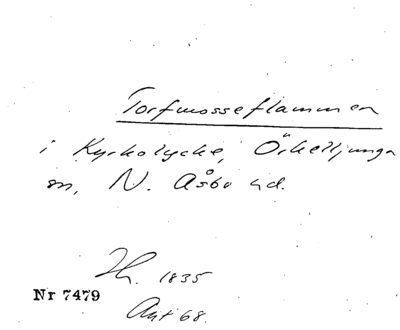 Torfmosseflammen
i Kyrkolycke, Örkelljunga
sn, N. Åsbo hd.
1835
Nr 7479
68.